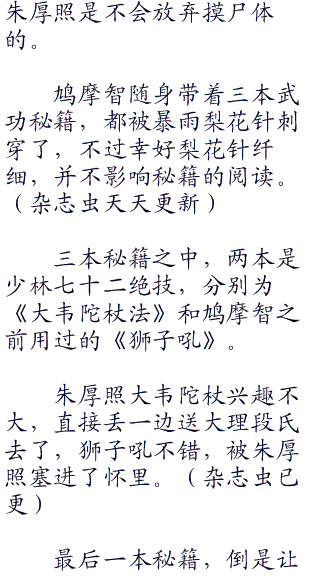 朱厚照是不会放弃摸尸体
的。
鸠摩智随身带着三本武
功秘籍，都被暴雨梨花针刺
穿了，不过幸好梨花针纤
细，并不影响秘籍的阅读。
（杂志虫天天更新）
三本秘籍之中，两本是
少林七十二绝技，分别为
《大韦陀杖法》和鸠摩智之
前用过的《狮子吼》。
朱厚照大韦陀杖兴趣不
大，直接丢一边送大理段氏
去了，狮子吼不错，被朱厚
照塞进了怀里。（杂志虫已
更）
最后一本秘籍，倒是让